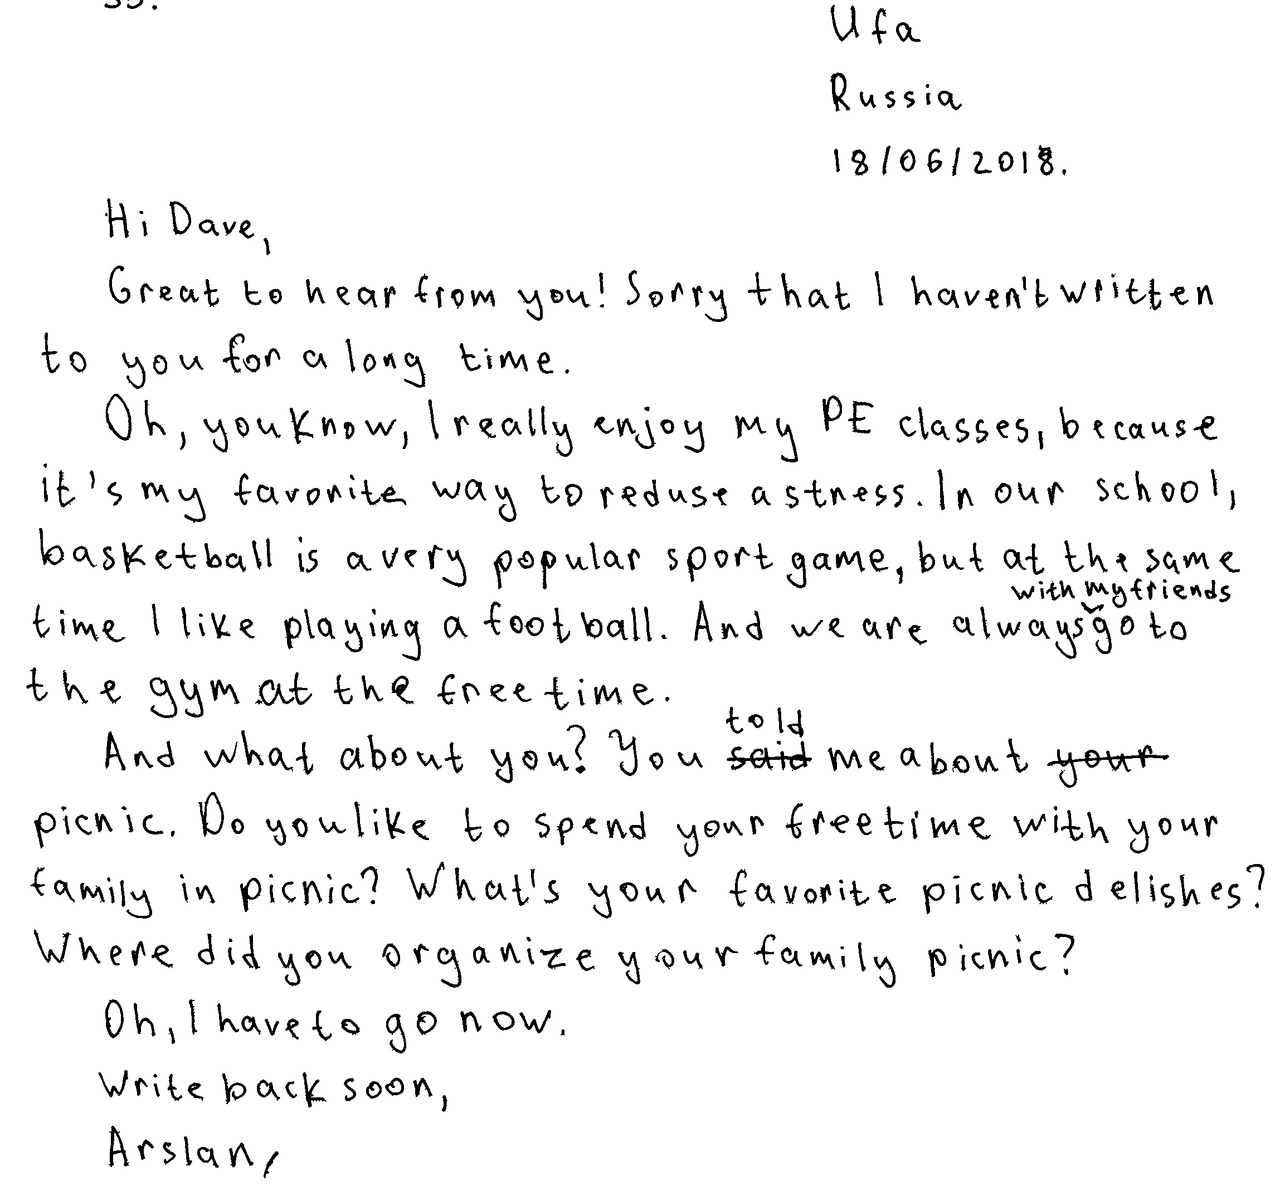 Ufa
Russia
18/06/2018.
Hi Dave,
Great to hear from you! Sorry that I haven't written
to you for a long time.
Oh, you know, I really enjoy my PE classes, because
it's my favorite way to reduse a stress. In our school,
basketball is a very popular sport game, but at the same
time I like playing a football. And we are always with my friends go to
the gym at the free time.
And what about you? You said told me about your
picnic. Do you like to spend your free time with your
family in picnic? What's your favorite picnic delishes?
Where did you organize your family picnic?
Oh, I have to go now.
Write back soon,
Arslan,